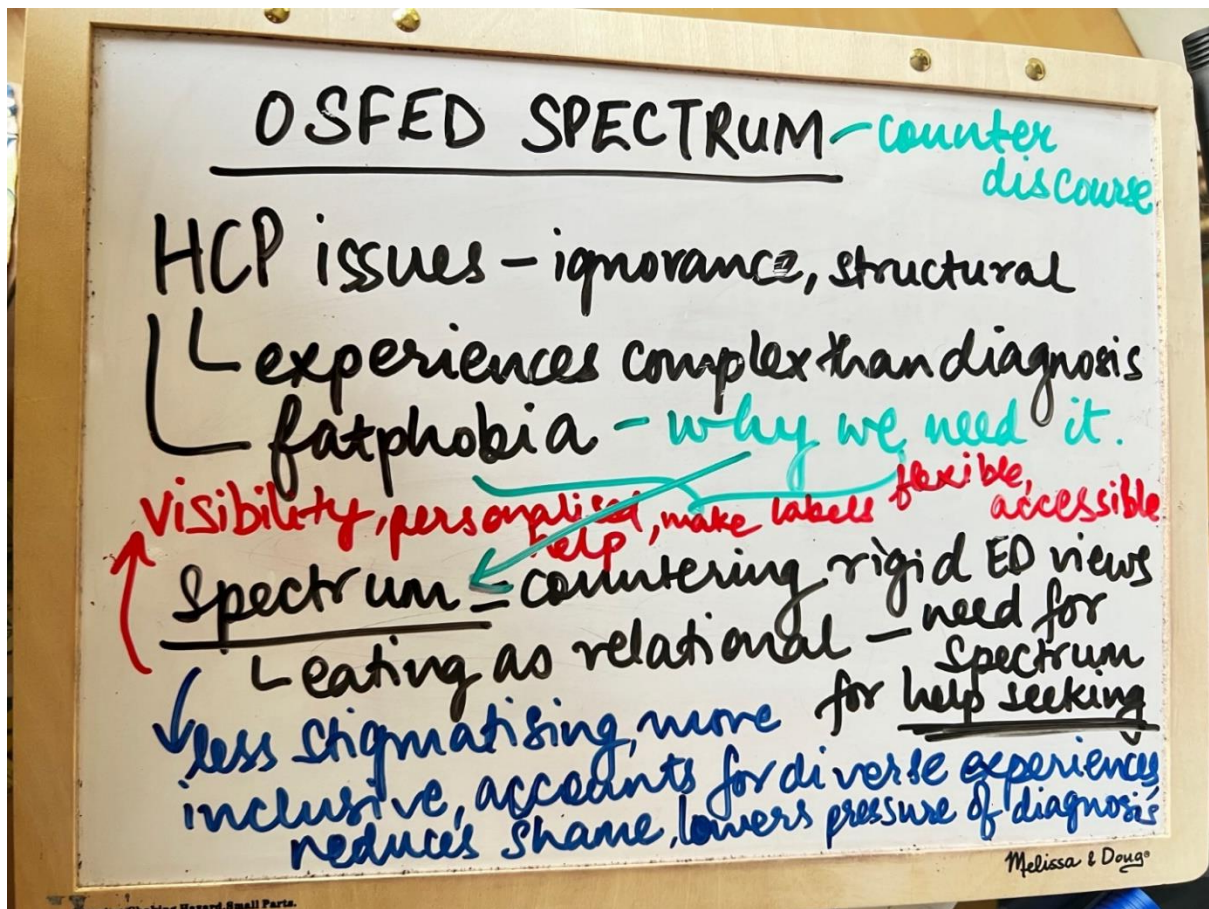 OSFED SPECTRUM – counter
discourse
HCP issues – ignorance, structural
experiences complex than diagnosis
fatphobia – why we need it.
visibility, personalised help, make labels flexible, accessible
Spectrum – countering rigid ED views
eating as relational – need for
spectrum
for help seeking
less stigmatising, more
inclusive, accounts for diverse experiences
reduces shame, lowers pressure of diagnosis
Melissa & Doug®
Choking Hazard. Small Parts.